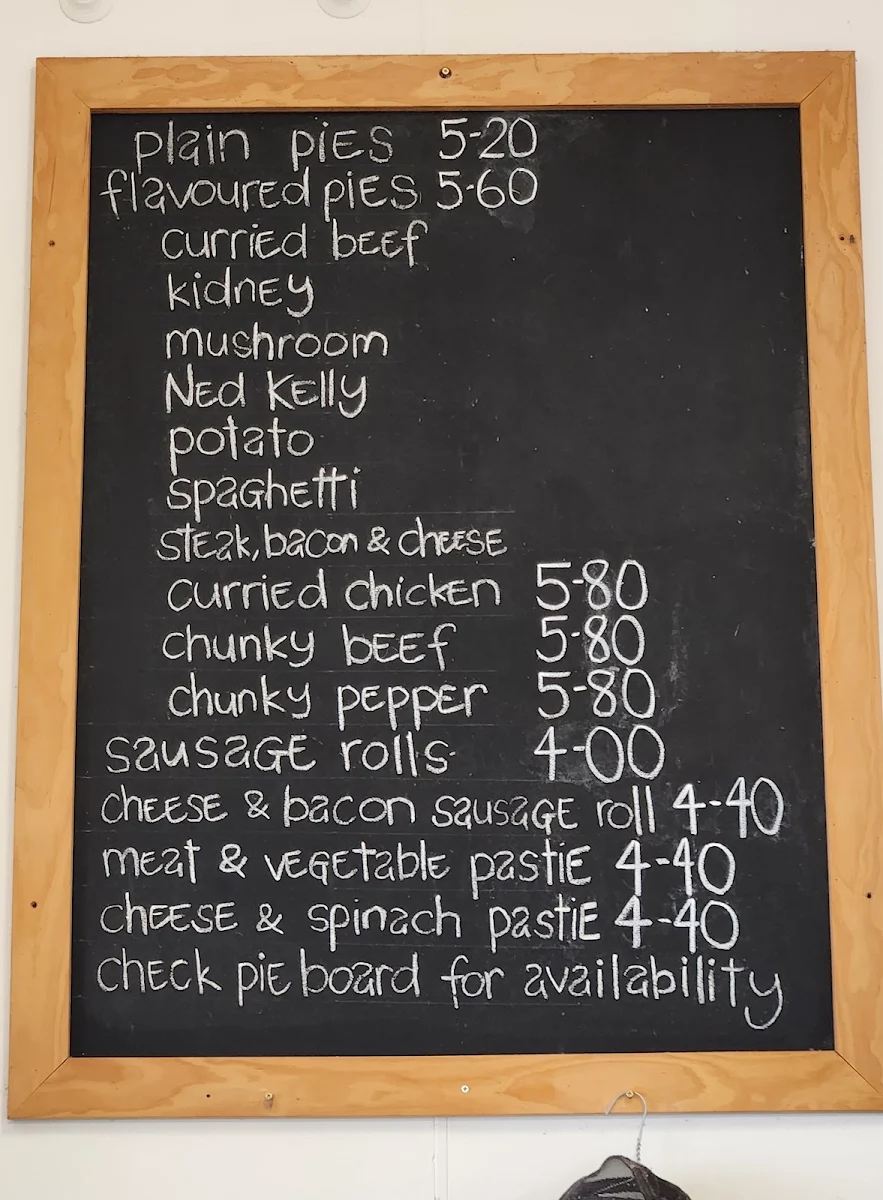 plain pies 5-20
flavoured pies 5-60
curried beef
kidney
mushroom
Ned Kelly
potato
spaghetti
steak, bacon & cheese
curried chicken 5-80
chunky beef 5-80
chunky pepper 5-80
sausage rolls 4-00
cheese & bacon sausage roll 4-40
meat & vegetable pastie 4-40
cheese & spinach pastie 4-40
check pie board for availability